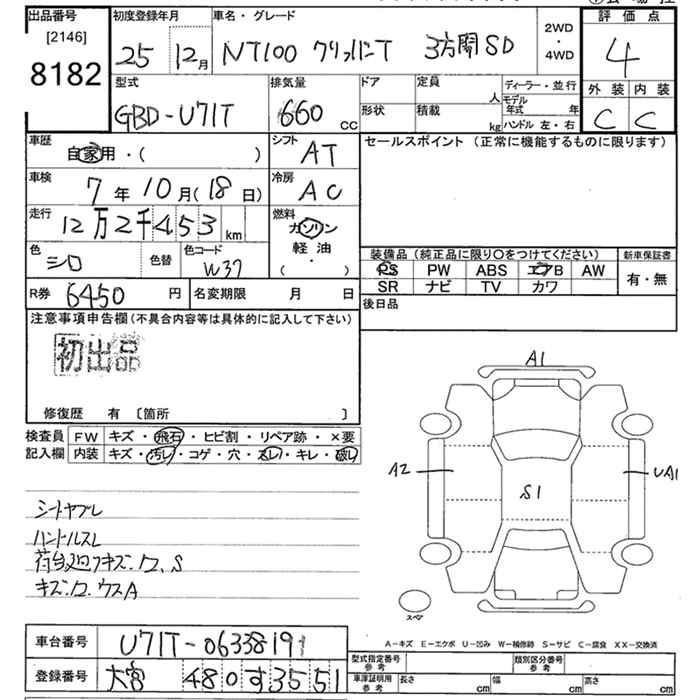 出品番号 初度登録年月 車名・グレード 評価点
[2146]
8182
25 12月 NT100 クリッパーT 3方開SD 2WD・4WD 4
型式 排気量 ドア 定員 人 ディーラー・並行 外装 内装
GBD-U71T 660 CC 形状 積載 kg モデル年式 年 ハンドル 左・右 C C
車歴 自家用・( ) シフト AT セールスポイント (正常に機能するものに限ります)
車検 7年10月(18日) 冷房 AC
走行 12万2千453km 燃料 ガソリン 軽油 ( ・ )
色 シロ 色替 色コード W37
装備品(純正品に限り○をつけてください) 新車保証書
PS PW ABS エアB AW 有・無
SR ナビ TV カワ
R券 6450円 名変期限 月 日 後日品
注意事項申告欄(不具合内容等は具体的に記入して下さい)
初出品
修復歴 有 〔箇所 〕
検査員 FW キズ・飛石・ヒビ割・リペア跡・×要
記入欄 内装 キズ・汚レ・コゲ・穴・スレ・キレ・破レ
A1
A2
UA1
S1
スペア
シートヤブレ
ハントルスレ
荷台廻フキズ.ク.S
キズ.ク.ウスA
A-キズ E-エクボ U-凹み W-補修跡 S-サビ C-腐食 XX-交換済
車台番号 U71T-0633819
型式指定番号 参考 類別区分番号 参考
登録番号 大宮 480す3551
車庫証明用 参考 長さ cm 幅 cm 高さ cm